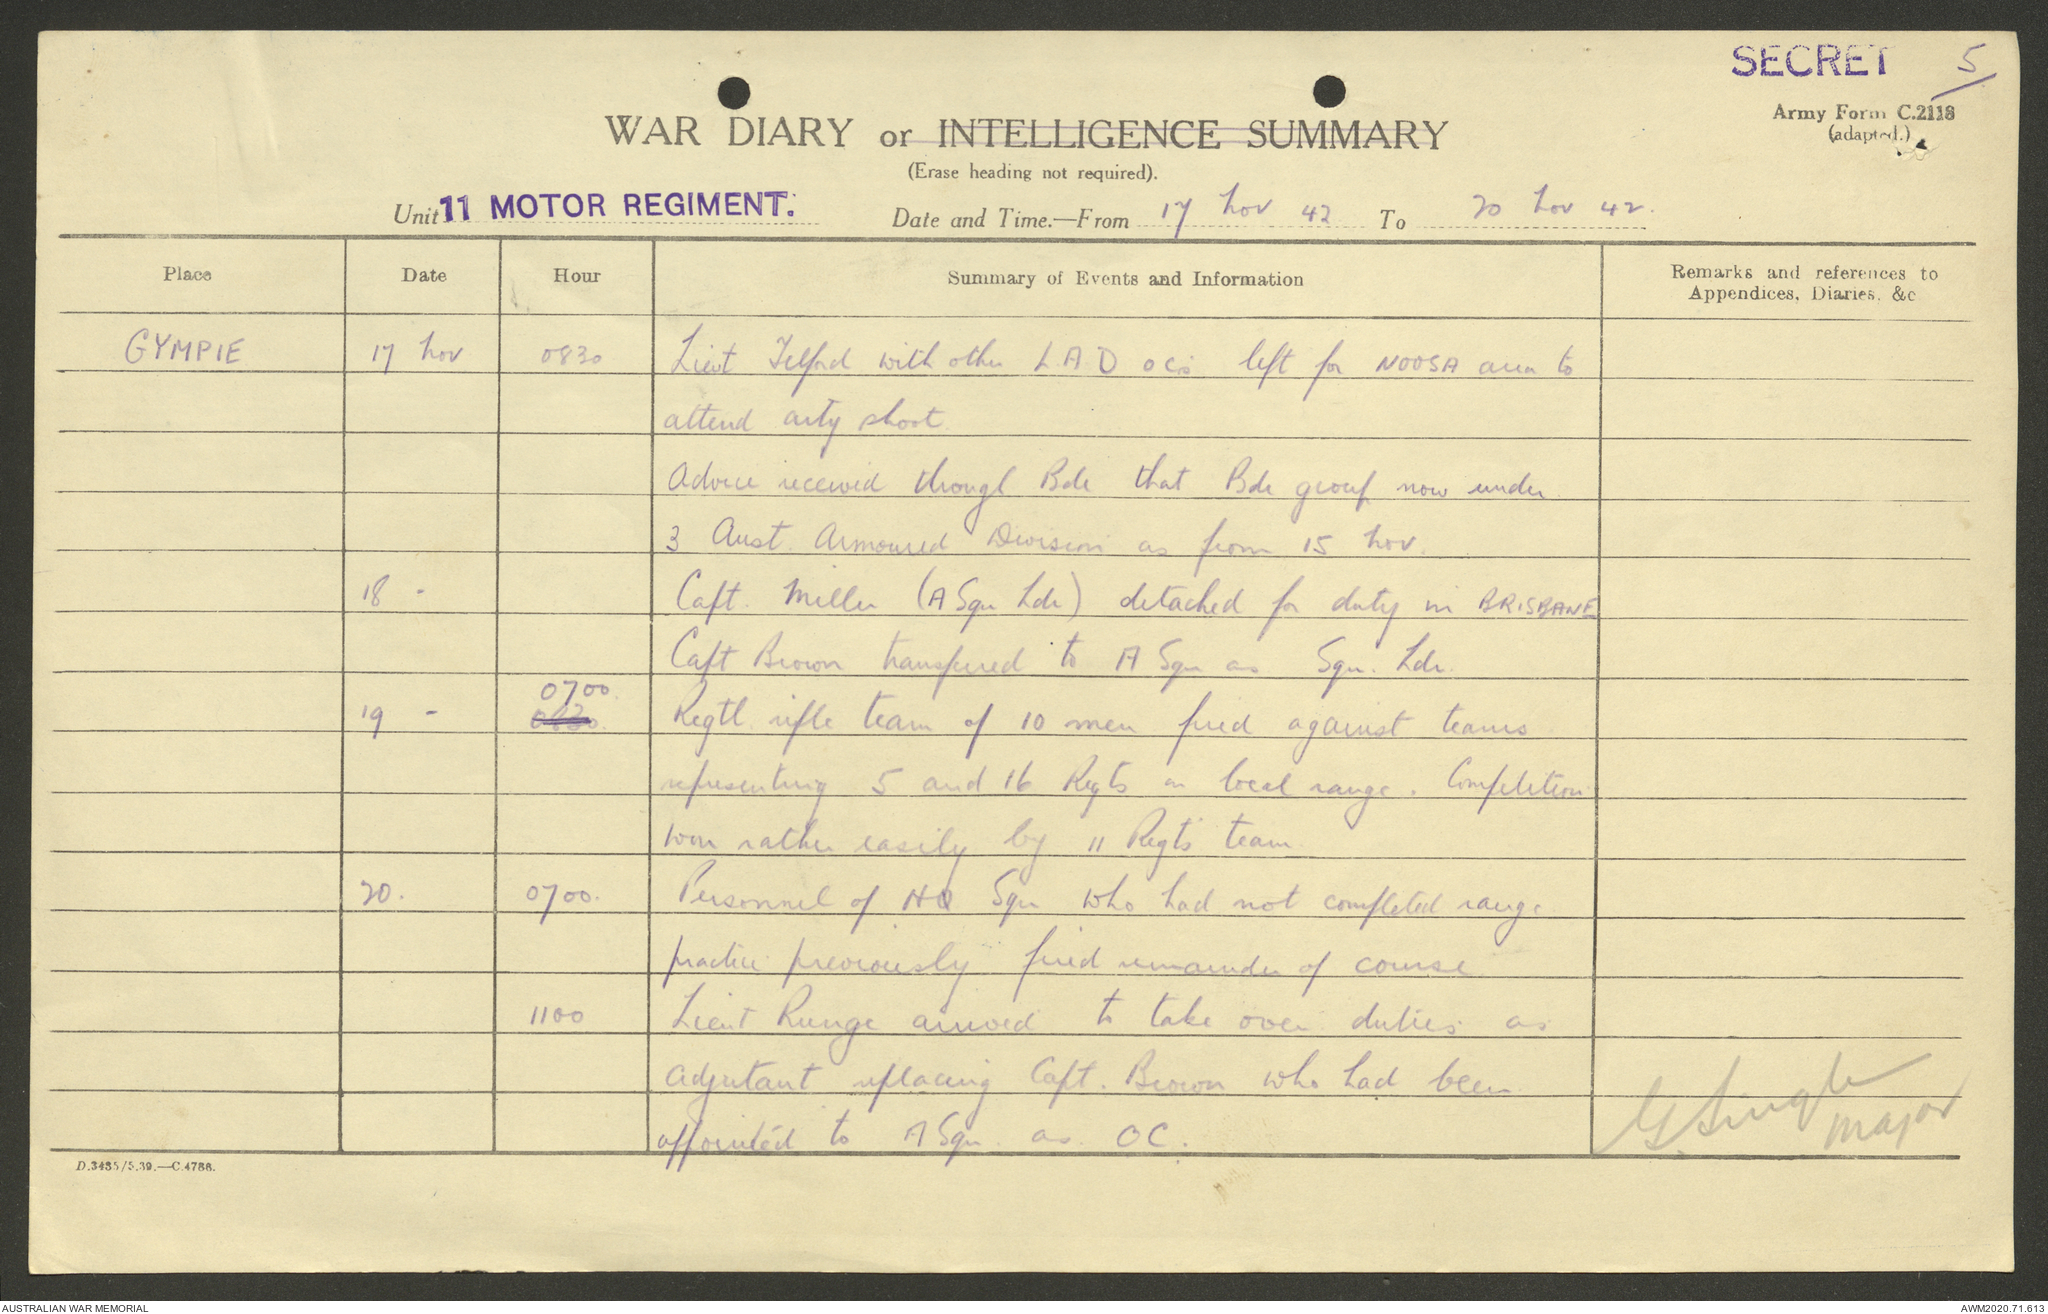 SECRET 5
Army Form C.2118
(adapted.)
WAR DIARY or INTELLIGENCE SUMMARY
(Erase heading not required).
Unit 11 MOTOR REGIMENT. Date and Time.—From 17 Nov 42 To 20 Nov 42.
Place Date Hour Summary of Events and Information Remarks and references to
Appendices, Diaries, &c
GYMPIE 17 Nov 0830 Lieut Telford with other L.A.D OCs left for NOOSA area to
attend arty shoot.
Advice received through Bde that Bde group now under
3 Aust. Armoured Division as from 15 Nov.
18 - Capt. Miller (A Sqn Ldr) detached for duty in BRISBANE
Capt Brown transferred to A Sqn as Sqn. Ldr.
0700.
19 - Regtl. rifle team of 10 men fired against teams
representing 5 and 16 Regts on local range. Competition
won rather easily by 11 Regts team.
20. 0700. Personnel of HQ Sqn who had not completed range
practice previously fired remainder of course
1100 Lieut Runge arrived to take over duties as
adjutant replacing Capt. Brown who had been
appointed to A Sqn. as OC.
Major
D.3485/5.39.—C.4786.
AUSTRALIAN WAR MEMORIAL AWM2020.71.613